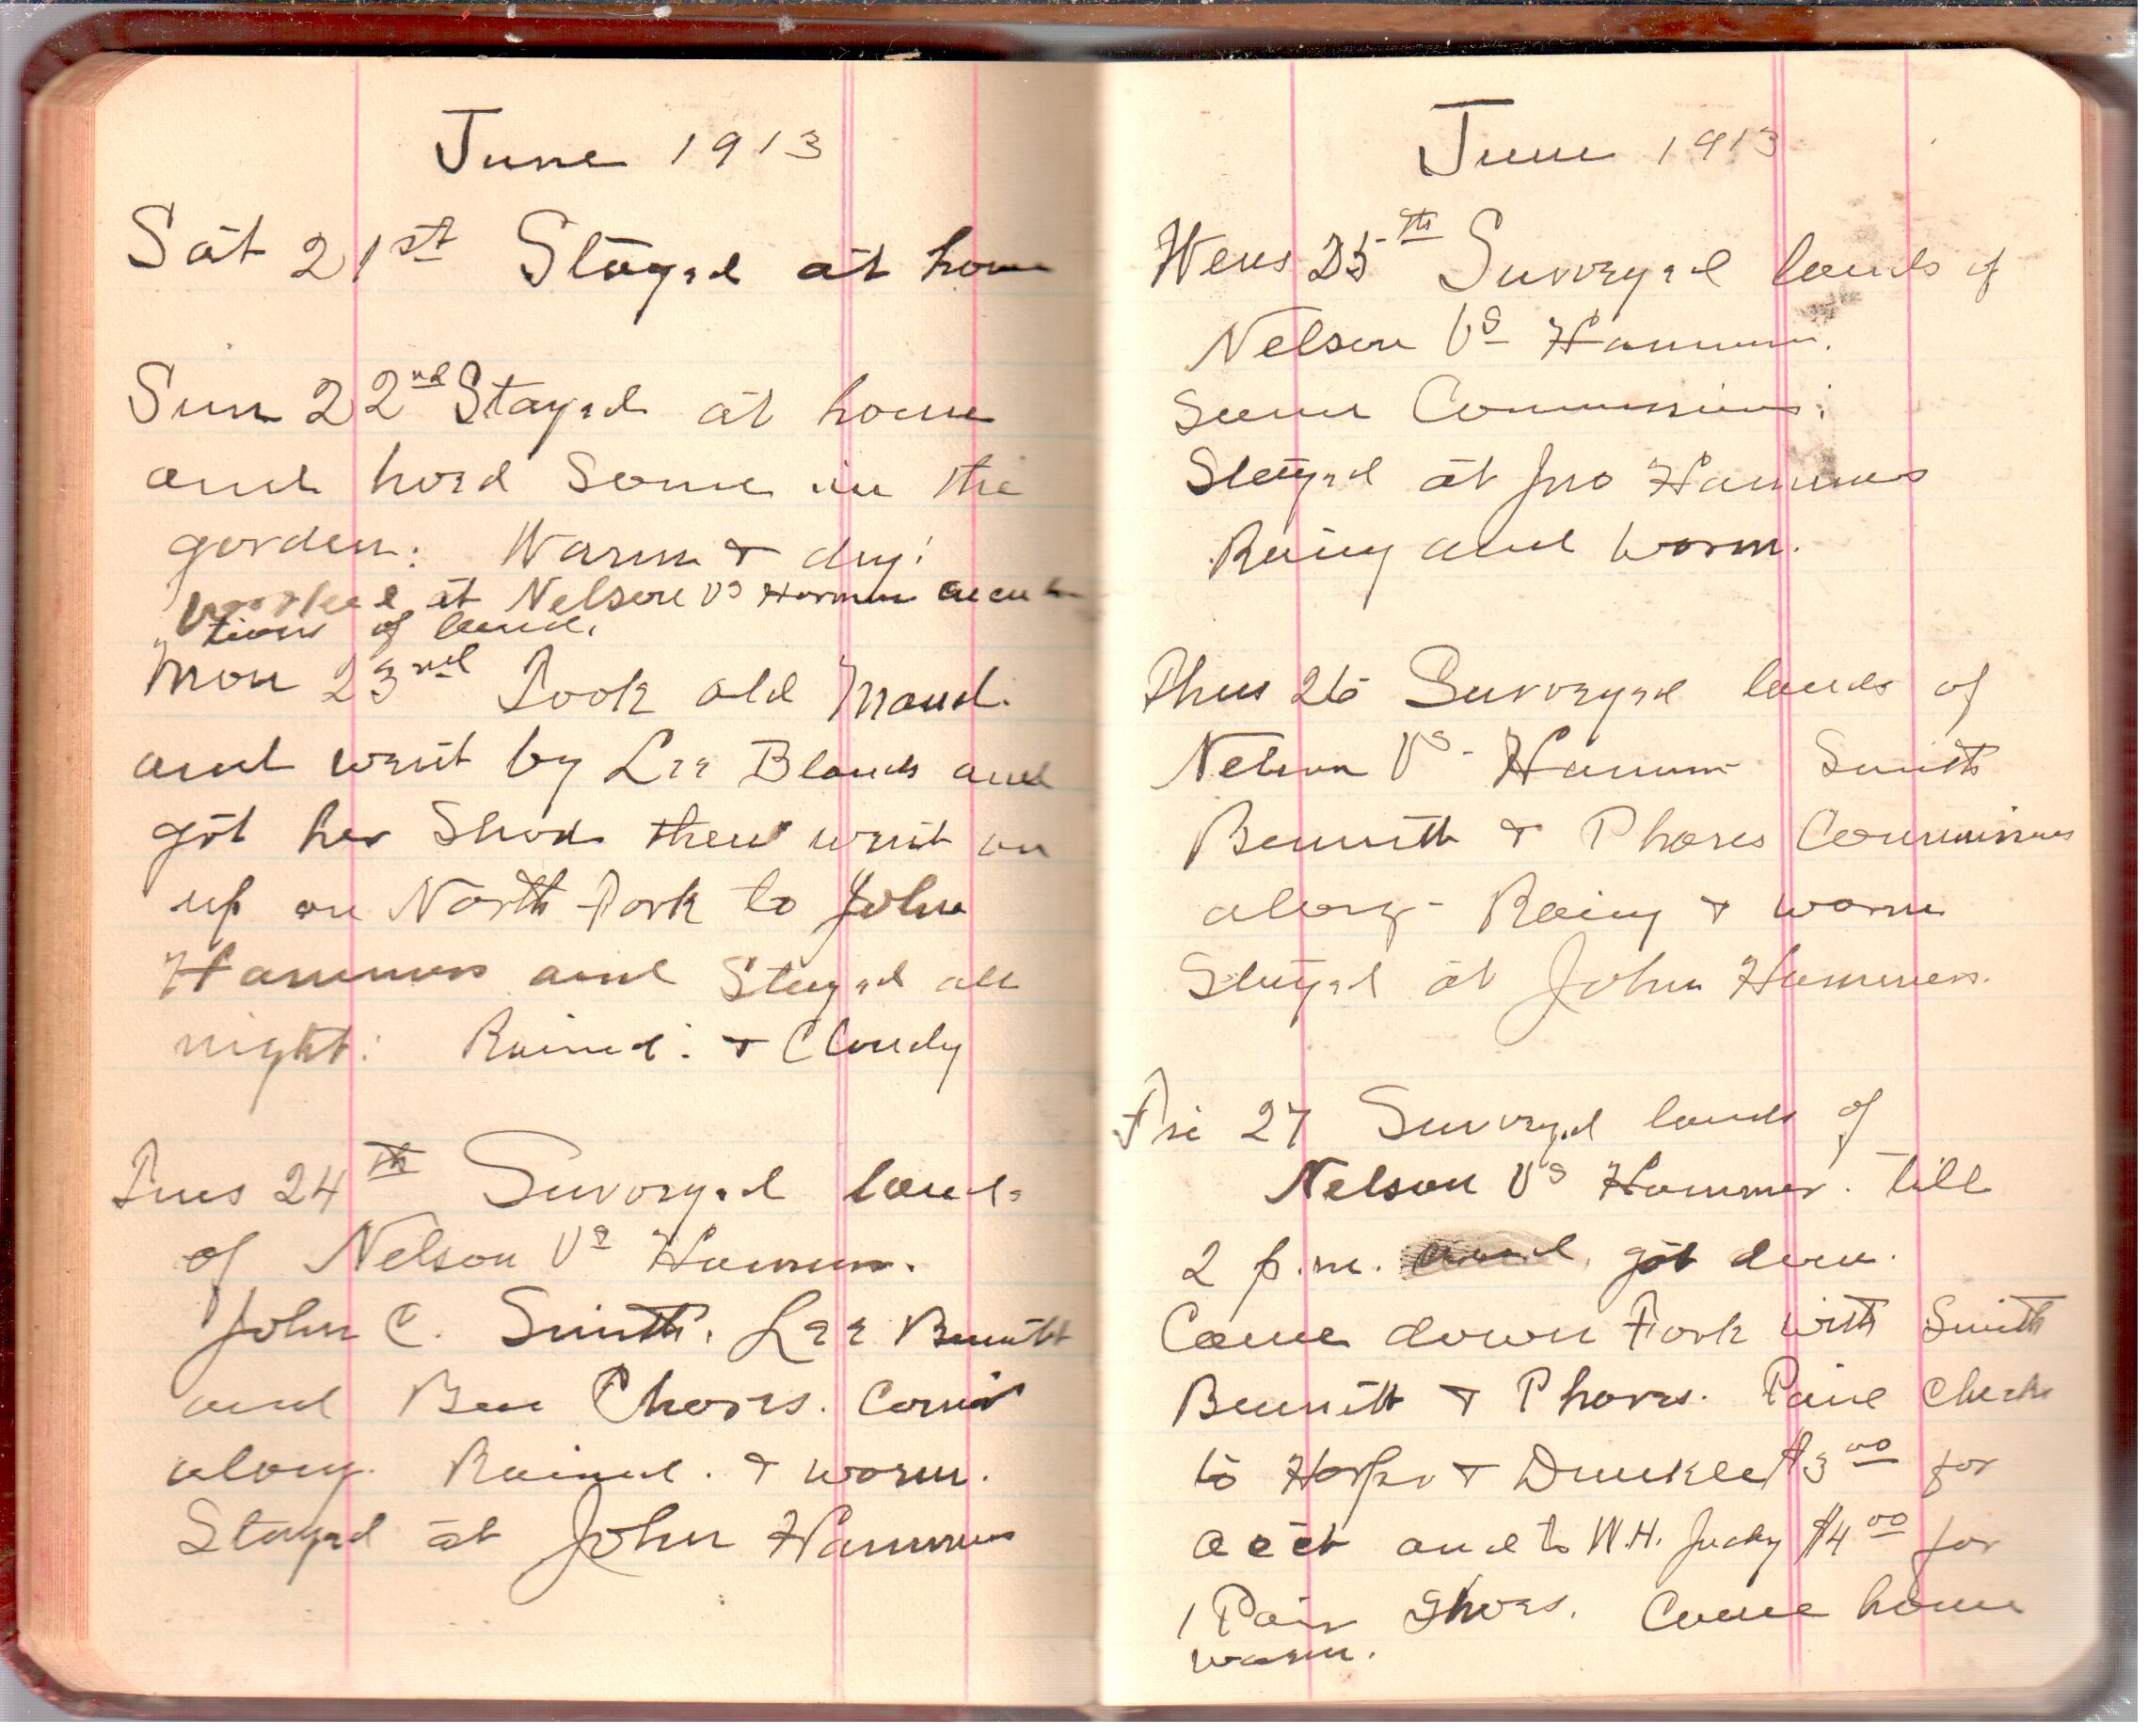 June 1913
Sat 21st Stayed at home
Sun 22nd Stayed at home
and hoed some in the
garden. Warm & dry.
worked at Nelson vs Harman
tions of land.
Mon 23rd Took old Maud.
and went by Lee Blands and
got her Shod then went on
up on North Fork to John
Hammers and Stayed all
night. Rained. & Cloudy
Tues 24th Surveyed lands
of Nelson Vs Hammer.
John C. Smith, Lee Bennett
and Ben Phares.
along. Rained. & warm.
Stayed at John Hammers
June 1913
Wens 25th Surveyed lands of
Nelson Vs Hammer.
Same
Stayed at Jno Hammers
Rainy and warm.
Thus 26 Surveyed lands of
Nelson Vs. Hammer Smith
Bennett & Phares
along - Rainy & warm
Stayed at John Hammers.
Fri 27 Surveyed lands of
Nelson Vs Hammer. till
2 p.m. and got done.
Came down Fork with Smith
Bennett & Phares. Paid checks
to Harper & Dunkle $3 00 for
acct and to W.H. Judy $4 00 for
1 Pair Shoes. Came home
warm.